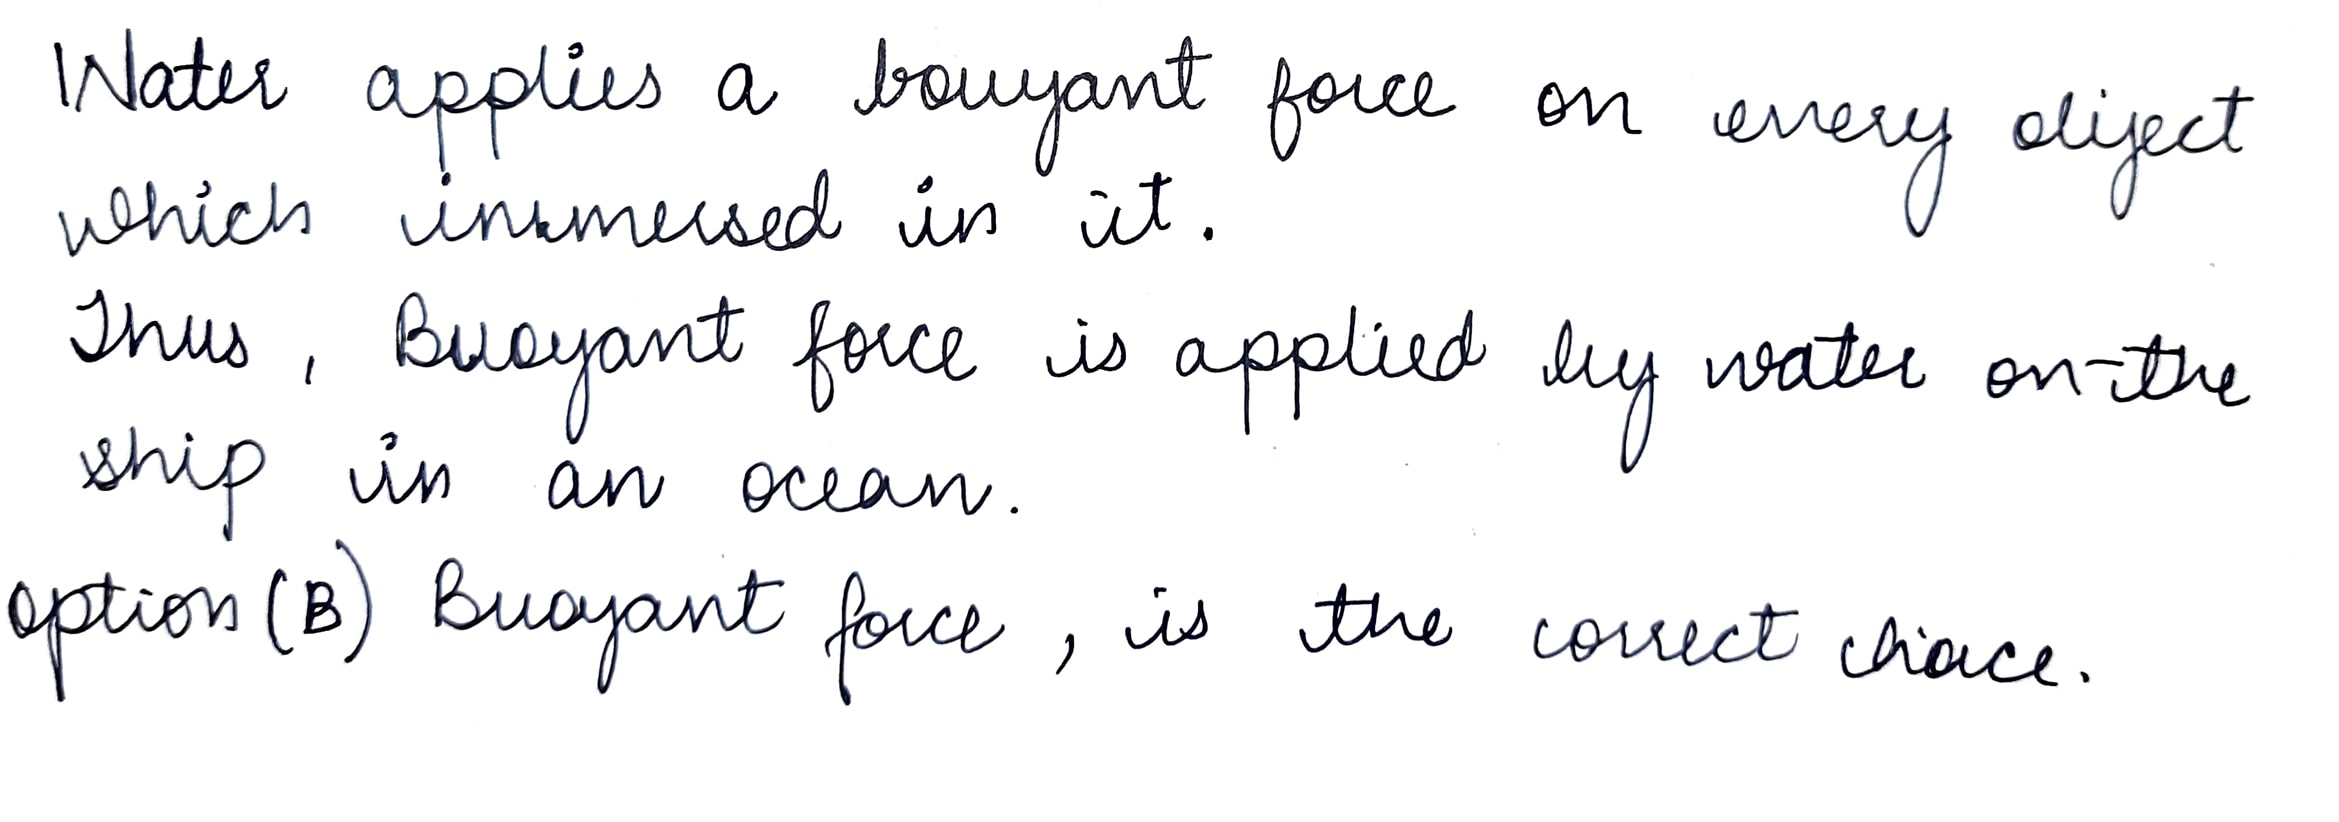 Water applies a bouyant force on every object
which immersed in it.
Thus, Buoyant force is applied by water on the
ship in an ocean.
option (B) Buoyant force, is the correct choice.